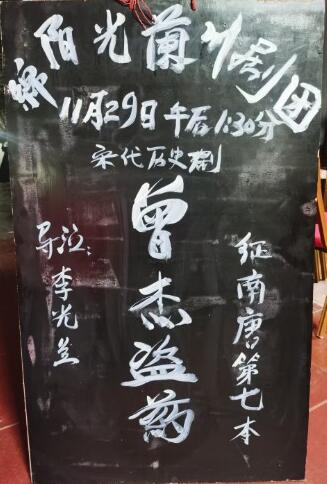 绵阳光蘭川剧团
11月29日午后1:30分
宋代历史剧
曾杰盗药
征南唐第七本
导演:李光兰